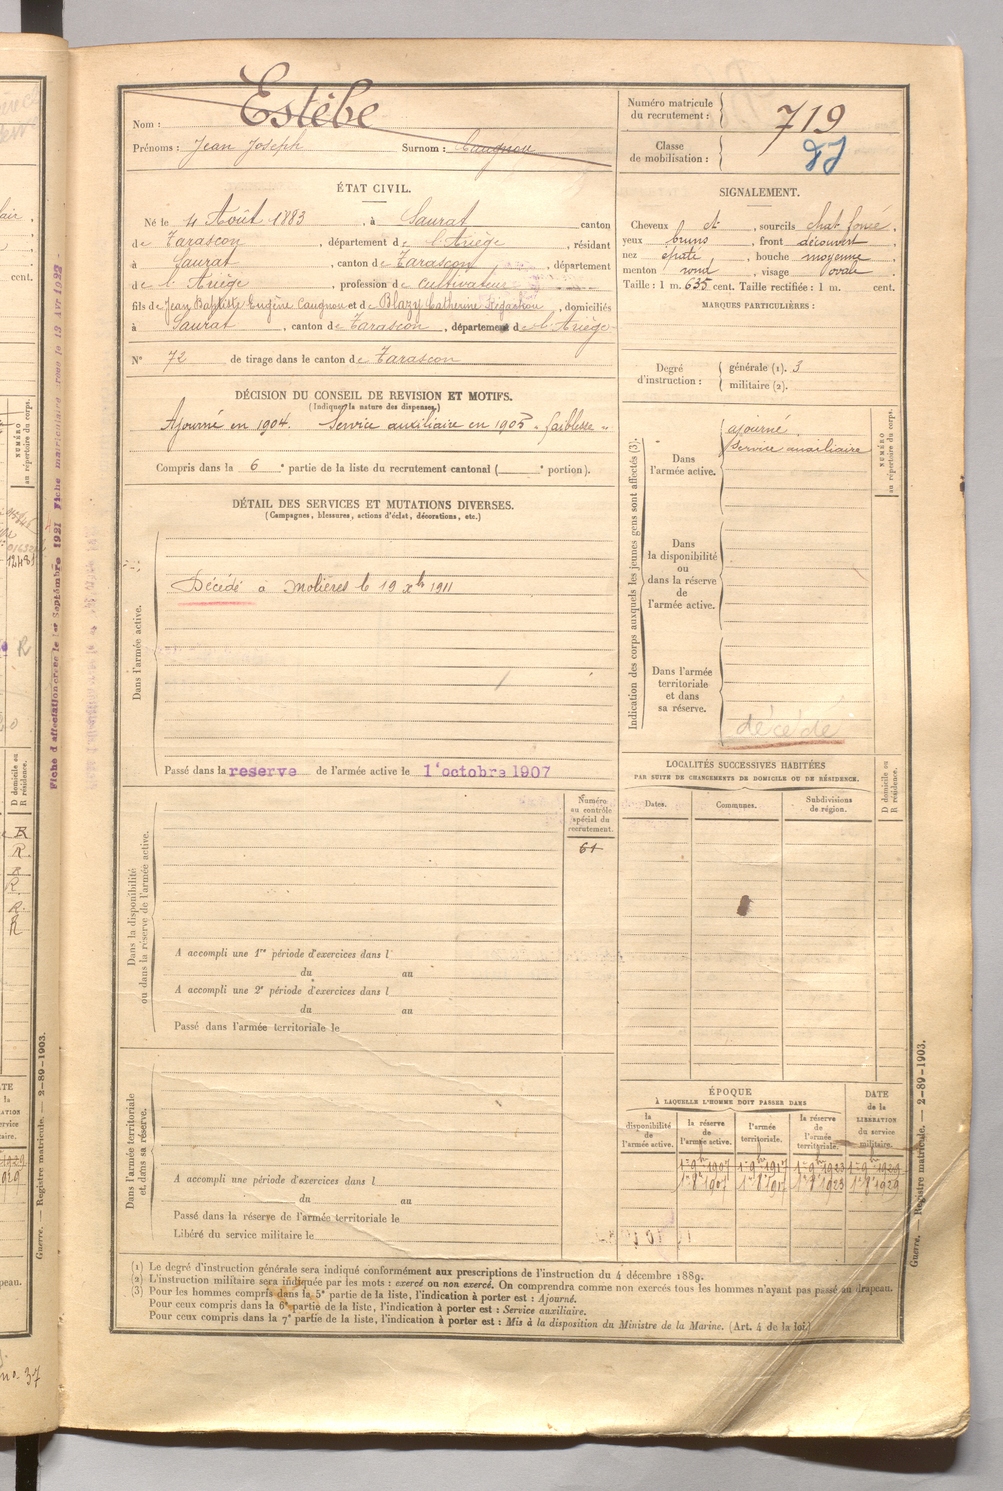 Nom : Estèbe
Prénoms : Jean Joseph Surnom : Caugnou
Numéro matricule du recrutement : 719
Classe de mobilisation :
ÉTAT CIVIL.
Né le 4 Août 1883, à Saurat canton
de Tarascon, département de l'Ariège, résidant
à Saurat, canton de Tarascon, département
de l'Ariège, profession de cultivateur
fils de Jean Baptiste Eugène Caugnou et de Blazy Catherine, domiciliés
à Saurat, canton de Tarascon, département de l'Ariège
N° 72 de tirage dans le canton de Tarascon
SIGNALEMENT.
Cheveux et, sourcils chat. foncé,
yeux bruns, front découvert
nez épaté, bouche moyenne
menton rond, visage ovale
Taille : 1 m. 635 cent. Taille rectifiée : 1 m. cent.
MARQUES PARTICULIÈRES :
Degré d'instruction : générale (1). 3
militaire (2).
DÉCISION DU CONSEIL DE REVISION ET MOTIFS.
(Indiquer la nature des dispenses.)
Ajourné en 1904. Service auxiliaire en 1905 "faiblesse"
Compris dans la 6e partie de la liste du recrutement cantonal ( e portion).
DÉTAIL DES SERVICES ET MUTATIONS DIVERSES.
(Campagnes, blessures, actions d'éclat, décorations, etc.)
Dans l'armée active.
Décédé à Molières le 19 xbre 1911
Passé dans la reserve de l'armée active le 1er octobre 1907
Indication des corps auxquels les jeunes gens sont affectés (3).
NUMÉRO au répertoire du corps.
Dans l'armée active.
ajourné
Service auxiliaire
Dans la disponibilité ou dans la réserve de l'armée active.
Dans l'armée territoriale et dans sa réserve.
décédé
LOCALITÉS SUCCESSIVES HABITÉES
PAR SUITE DE CHANGEMENTS DE DOMICILE OU DE RÉSIDENCE.
Dates.
Communes.
Subdivisions de région.
D domicile ou R résidence.
Dans la disponibilité ou dans la réserve de l'armée active.
Numéro au contrôle spécial du recrutement.
61
A accompli une 1re période d'exercices dans l
du au
A accompli une 2e période d'exercices dans l
du au
Passé dans l'armée territoriale le
Dans l'armée territoriale et dans sa réserve.
A accompli une période d'exercices dans l
du au
Passé dans la réserve de l'armée territoriale le
Libéré du service militaire le
ÉPOQUE
À LAQUELLE L'HOMME DOIT PASSER DANS
la disponibilité de l'armée active.
la réserve de l'armée active.
l'armée territoriale.
la réserve de l'armée territoriale.
DATE de la LIBÉRATION du service militaire.
1er 9bre 1907 1er 9bre 1917 1er 9bre 1923 1er 9bre 1929
1er 8bre 1907 1er 8bre 1917 1er 8bre 1923 1er 8bre 1929
(1) Le degré d'instruction générale sera indiqué conformément aux prescriptions de l'instruction du 4 décembre 1889.
(2) L'instruction militaire sera indiquée par les mots : exercé ou non exercé. On comprendra comme non exercés tous les hommes n'ayant pas passé au drapeau.
(3) Pour les hommes compris dans la 5e partie de la liste, l'indication à porter est : Ajourné.
Pour ceux compris dans la 6e partie de la liste, l'indication à porter est : Service auxiliaire.
Pour ceux compris dans la 7e partie de la liste, l'indication à porter est : Mis à la disposition du Ministre de la Marine. (Art. 4 de la loi.)
Guerre. — Registre matricule. — 2-89-1903.
Guerre. — Registre matricule. — 2-89-1903.